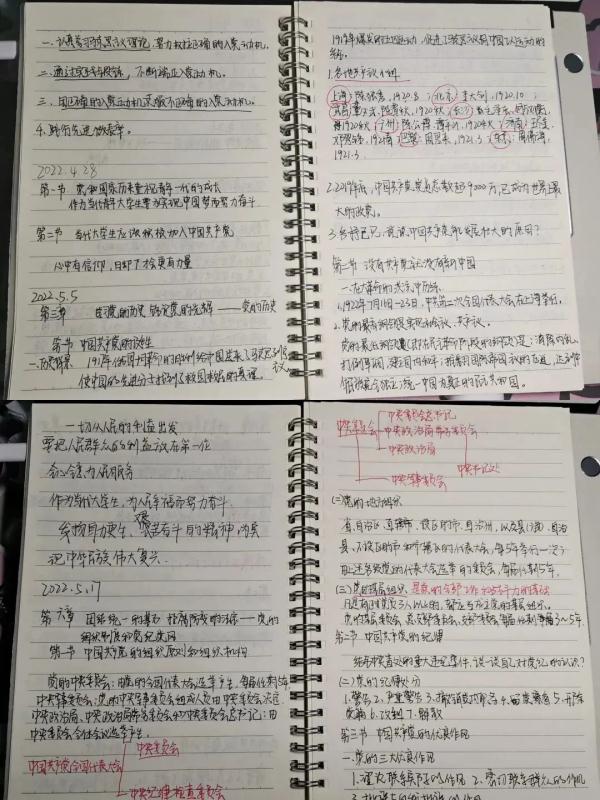 一、认真学习马克思主义理论,努力树立正确的入党动机。
二、通过实践锻炼,不断端正入党动机。
三、用正确的入党动机克服不正确的入党动机。
4.践行先进做表率。
2022.4.28
第一节 党和国家历来重视青年一代的成长
作为当代青年大学生要为实现中国梦而努力奋斗
第二节 当代大学生应该积极加入中国共产党
心中有信仰,日却下会更有力量
2022.5.5
第三章 党的历史
第一节 中国共产党的诞生
一.历史背景 1917年俄国十月革命的胜利给中国送来了马克思列宁主义
使中国的先进分子找到了救国救民的真理。
1919年爆发的五四运动,促进了马克思主义同中国工人运动的
结合。
1.各地共产主义小组
上海:陈独秀,1920.8;北京:李大钊,1920.10;
武昌:董必武、陈潭秋,1920秋;长沙:毛泽东、何叔衡,
1920秋;广州:陈公博、谭平山,1920秋;济南:王尽美、
邓恩铭,1921春;巴黎:周恩来,1921.3;东京:周佛海,
1921.3
2.2019年底,中国共产党党员总数超9000万,已成为世界上最
大的政党。
3.台湾已见,竟说中国共产党能发展壮大的原因?
第二节 没有共产党就没有新中国
一.在革命的洪流中历练
1.1922年7月16日-23日,中共第二次全国代表大会在上海举行。
2.党的最高纲领是实现社会主义、共产主义。
党的最低纲领是消除内乱,
打倒军阀,建立国内和平;推翻国际帝国主义的压迫,达到中
华民族完全独立;统一中国为真正的民主共和国。
一切从人民的利益出发
要把人民群众的利益放在第一位
全心全意为人民服务
作为当代大学生,为人民幸福而努力奋斗
发扬自力更生、艰苦奋斗的精神,为实
现中华民族伟大复兴.
2022.5.17
第六章 党的
组织制度和党纪党风
第一节 中国共产党的组织原则和组织机构
党的中央委员会:由党的全国代表大会选举产生,每届任期5年
中央军事委员会:党的中央军事委员会组成人员由中央委员会决定
中央政治局、中央政治局常务委员会和中央委员会总书记:由
中央委员会全体会议选举产生.
中央委员会
中国共产党全国代表大会
中央纪律检查委员会
中央委员会
中央委员会总书记
中央政治局常务委员会
中央政治局
中央书记处
中央军事委员会
(二)党的地方组织
省、自治区、直辖市、设区的市、自治州,以及县(旗)、自治
县、不设区的市和市辖区的代表大会,每5年举行一次;
由上述各级党的代表大会选举的委员会,每届任期5年.
(三)党的基层组织 是党的全部工作和战斗力的基础
凡是有正式党员3人以上的,都应当成立党的基层组织。
党的基层委员会、总支部委员会、支部委员会每届任期3~5年.
第二节 中国共产党的纪律
谈一谈自己对党纪的认识?
(二)党的纪律处分
1.警告 2.严重警告 3.撤销党内职务 4.留党察看 5.开除
党籍
第三节 中国共产党的优良作风
一.党的三大优良作风
1.理论联系实际的作风 2.密切联系群众的作风